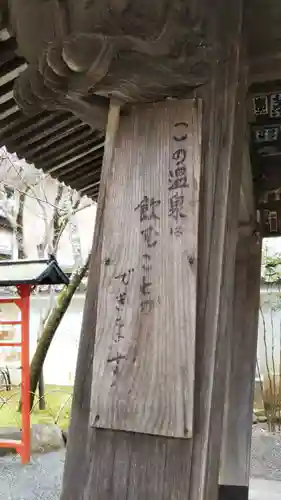 この温泉は
飲むことが
できます